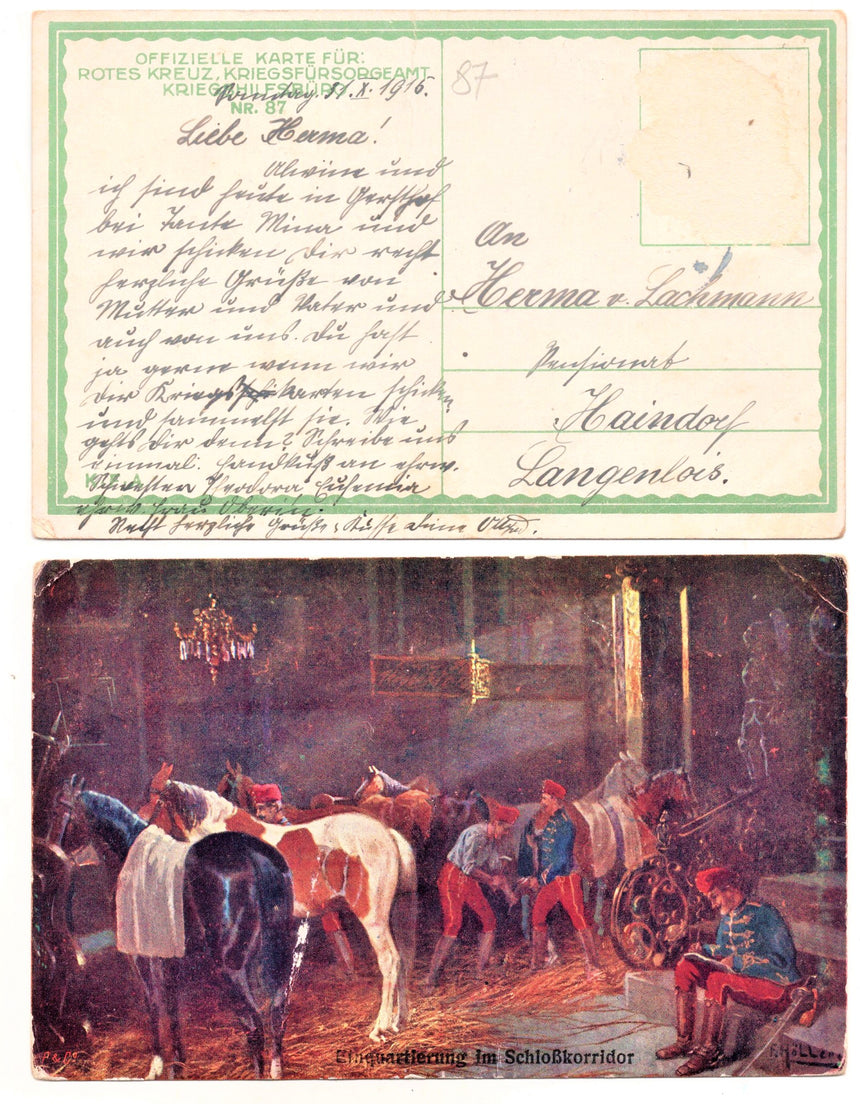 OFFIZIELLE KARTE FÜR:
ROTES KREUZ, KRIEGSFÜRSORGEAMT
KRIEGSHILFSBÜRO
NR. 87
87
Sonntag, 31. X. 1915.
Liebe Herma!
Alwine und
ich sind heute in Gersthof
bei Tante Mina und
wir schicken Dir recht
herzliche Grüße von
Mutter und Vater und
auch von uns. Du hast
ja gerne wenn wir
Dir Kriegskarten schicken
und sammelst sie. Wie
gehts Dir denn? Schreibe uns
einmal. Handkuß an ehrw.
Schwester Theodora Euhemia
ehrw. Frau Oberin.
Recht herzliche Grüße, Küsse Deine
An
Herma v. Lachmann
Pensionat
Haindorf
Langenlois.
Einquartierung im Schloßkorridor